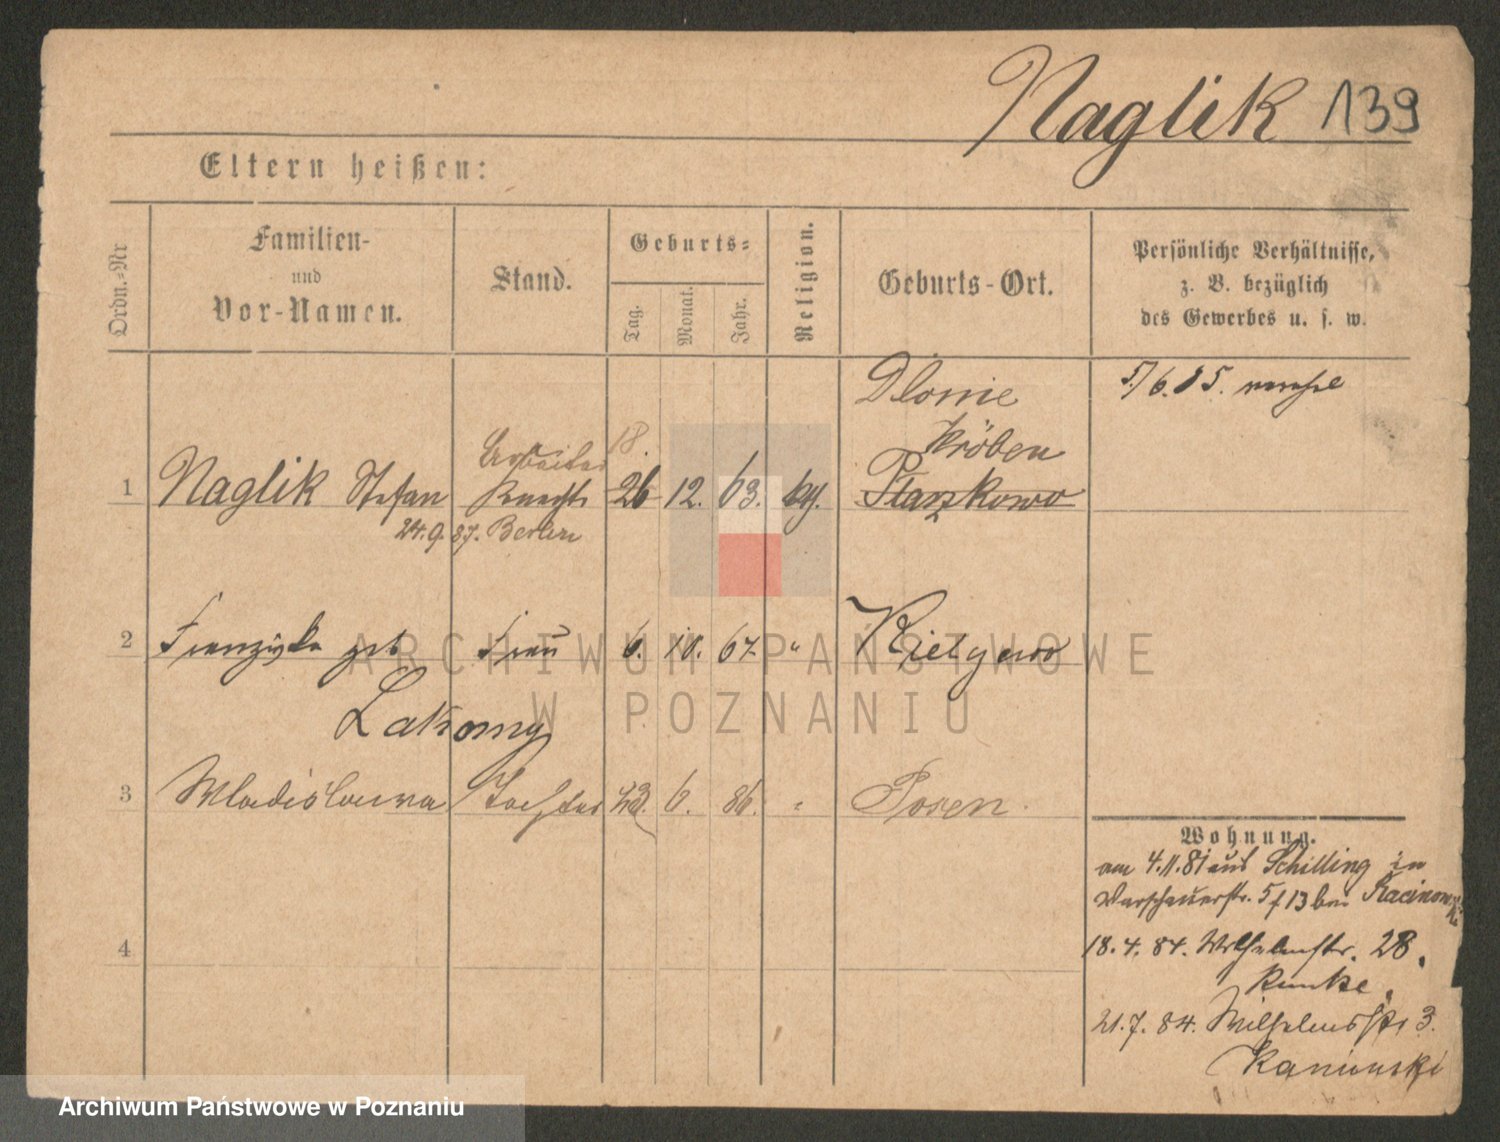 Naglik 139
Eltern heißen:
Ordn.-Nr
Familien-
und
Vor-Namen.
Stand.
Geburts-
Tag.
Monat.
Jahr.
Religion.
Geburts-Ort.
Persönliche Verhältnisse,
z. B. bezüglich
des Gewerbes u. s. w.
Dlonie
5./6.85.
Kröben
Arbeiter 18.
1 Naglik Stefan Knecht 26 12. 63. kath. Ptaszkowo
24.9.87. Berlin
2 Franziska geb Frau 6. 10. 67. " Kielczewo
Lakomy
3 Wladislawa Tochter 23. 6. 86. " Posen
Wohnung.
am 4.11.81 aus Schilling in
Warschauerstr. 5/13 bei
4
18.4.84. Wilhelmstr. 28.
Runke.
21.7.84. Wilhelmstr 3.
Kaniewski
ARCHIWUM PAŃSTWOWE
W POZNANIU
Archiwum Państwowe w Poznaniu